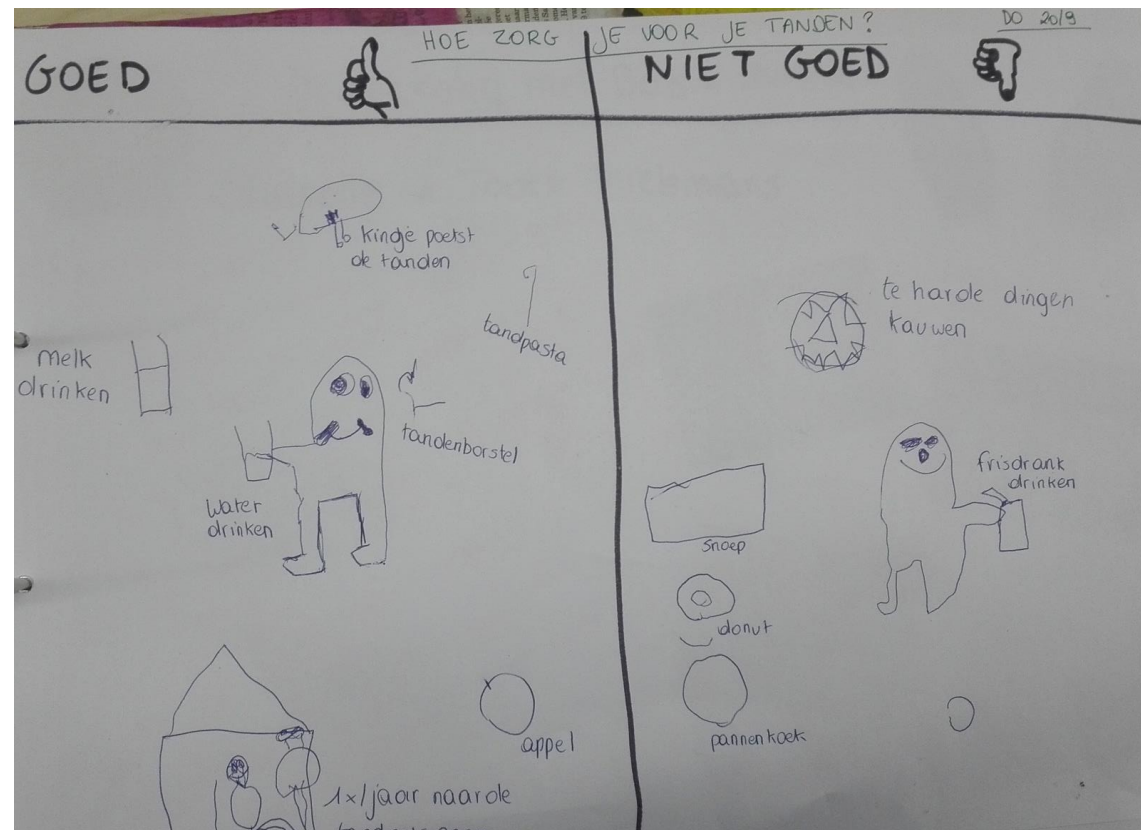 HOE ZORG JE VOOR JE TANDEN?
DO 20/9
GOED
NIET GOED
kindje poetst
de tanden
tandpasta
melk
drinken
tandenborstel
water
drinken
appel
1x/jaar naar de
te harde dingen
kauwen
frisdrank
drinken
snoep
donut
pannenkoek